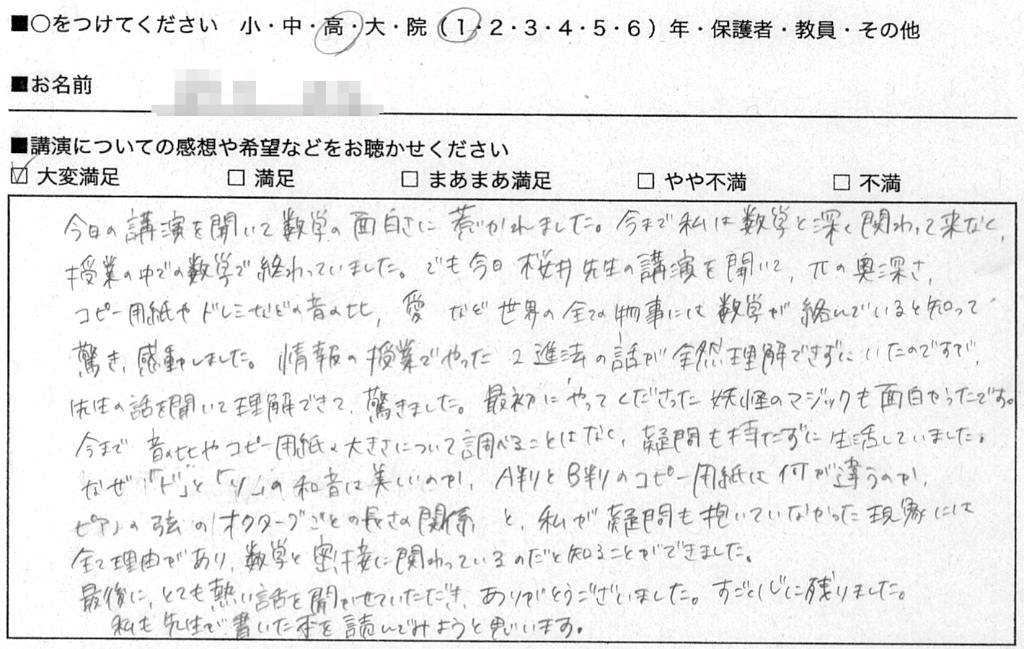 ■○をつけてください 小・中・高・大・院（1・2・3・4・5・6）年・保護者・教員・その他
■お名前
■講演についての感想や希望などをお聴かせください
☑ 大変満足 □ 満足 □ まあまあ満足 □ やや不満 □ 不満
今日の講演を聞いて数学の面白さに惹かれました。今まで私は数学と深く関わって来なく、
授業の中での数学で終わっていました。でも今日桜井先生の講演を聞いて、πの奥深さ、
コピー用紙やドレミなどの音の比、愛など世界の全ての物事には数学が絡んでいると知って
驚き、感動しました。情報の授業でやった2進法の話が全然理解できずにいたのですが、
先生の話を聞いて理解できて、驚きました。最初にやってくださった妖怪のマジックも面白かったです。
今まで音の比やコピー用紙の大きさについて調べることはなく、疑問も持たずに生活していました。
なぜ「ド」と「ソ」の和音は美しいのか、A判とB判のコピー用紙は何が違うのか、
ピアノの弦の1オクターブごとの長さの関係、と、私が疑問も抱いていなかった現象には
全て理由があり、数学と密接に関わっているのだと知ることができました。
最後に、とても熱い話を聞かせていただき、ありがとうございました。すごく心に残りました。
私も先生が書いた本を読んでみようと思います。